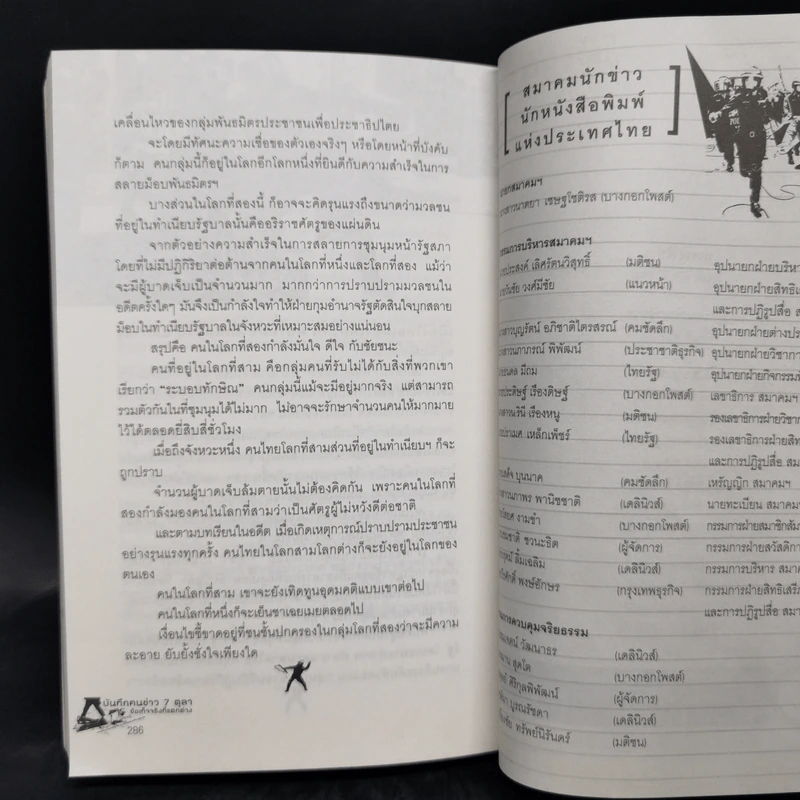 เคลื่อนไหวของกลุ่มพันธมิตรประชาชนเพื่อประชาธิปไตย
จะโดยมีทัศนะความเชื่อของตัวเองจริงๆ หรือโดยหน้าที่บังคับ
ก็ตาม คนกลุ่มนี้ก็อยู่ในโลกอีกโลกหนึ่งที่ยินดีกับความสำเร็จในการ
สลายม็อบพันธมิตรฯ
บางส่วนในโลกที่สองนี้ ก็อาจจะคิดรุนแรงถึงขนาดว่ามวลชน
ที่อยู่ในทำเนียบรัฐบาลนั้นคืออริราชศัตรูของแผ่นดิน
จากตัวอย่างความสำเร็จในการสลายการชุมนุมหน้ารัฐสภา
โดยที่ไม่มีปฏิกิริยาต่อต้านจากคนในโลกที่หนึ่งและโลกที่สอง แม้ว่า
จะมีผู้บาดเจ็บเป็นจำนวนมาก มากกว่าการปราบปรามมวลชนใน
อดีตครั้งใดๆ มันจึงเป็นกำลังใจทำให้ฝ่ายกุมอำนาจรัฐตัดสินใจบุกสลาย
ม็อบในทำเนียบรัฐบาลในจังหวะที่เหมาะสมอย่างแน่นอน
สรุปคือ คนในโลกที่สองกำลังมั่นใจ ดีใจ กับชัยชนะ
คนที่อยู่ในโลกที่สาม คือกลุ่มคนที่รับไม่ได้กับสิ่งที่พวกเขา
เรียกว่า “ระบอบทักษิณ” คนกลุ่มนี้แม้จะมีอยู่มากจริง แต่สามารถ
รวมตัวกันในที่ชุมนุมได้ไม่มาก ไม่อาจจะรักษาจำนวนคนให้มากมาย
ไว้ได้ตลอดยี่สิบสี่ชั่วโมง
เมื่อถึงจังหวะหนึ่ง คนไทยโลกที่สามส่วนที่อยู่ในทำเนียบฯ ก็จะ
ถูกปราบ
จำนวนผู้บาดเจ็บล้มตายนั้นไม่ต้องคิดกัน เพราะคนในโลกที่
สองกำลังมองคนในโลกที่สามว่าเป็นศัตรูผู้ไม่หวังดีต่อชาติ
และตามบทเรียนในอดีต เมื่อเกิดเหตุการณ์ปราบปรามประชาชน
อย่างรุนแรงทุกครั้ง คนไทยในโลกสามโลกต่างก็จะยังอยู่ในโลกของ
ตนเอง
คนในโลกที่สาม เขาจะยังเทิดทูนอุดมคติแบบเขาต่อไป
คนในโลกที่หนึ่งก็จะเย็นชาเฉยเมยตลอดไป
เงื่อนไขชี้ขาดอยู่ที่ชนชั้นปกครองในกลุ่มโลกที่สองว่าจะมีความ
ละอาย ยับยั้งชั่งใจเพียงใด
บันทึกคนข่าว 7 ตุลา
286
สมาคมนักข่าว
นักหนังสือพิมพ์
แห่งประเทศไทย
นาตยา เชษฐโชติรส (บางกอกโพสต์)
กรรมการบริหารสมาคมฯ
ประสงค์ เลิศรัตนวิสุทธิ์ (มติชน) อุปนายกฝ่ายบริหาร
วันชัย วงศ์มีชัย (แนวหน้า) อุปนายกฝ่ายสิทธิ
และการปฏิรูปสื่อ
บุญรัตน์ อภิชาติไตรสรณ์ (คมชัดลึก) อุปนายกฝ่ายต่างประ
นภาภรณ์ พิพัฒน์ (ประชาชาติธุรกิจ) อุปนายกฝ่ายวิชากา
มีถม (ไทยรัฐ) อุปนายกฝ่ายกิจกรรม
ประดิษฐ์ เรืองดิษฐ์ (บางกอกโพสต์) เลขาธิการ สมาคมฯ
เรืองหนู (มติชน) รองเลขาธิการฝ่ายวิชา
ปราเมศ เหล็กเพ็ชร์ (ไทยรัฐ) รองเลขาธิการฝ่ายสิท
และการปฏิรูปสื่อ สม
บุนนาค (คมชัดลึก) เหรัญญิก สมาคมฯ
พานิชชาติ (เดลินิวส์) นายทะเบียน สมาคมฯ
งามขำ (บางกอกโพสต์) กรรมการฝ่ายสมาชิกสัม
ชวนะธิต (ผู้จัดการ) กรรมการฝ่ายสวัสดิกา
ลิ้มเฉลิม (เดลินิวส์) กรรมการบริหาร สมาค
พงษ์อักษร (กรุงเทพธุรกิจ) กรรมการฝ่ายสิทธิเสรี
และการปฏิรูปสื่อ สม
การควบคุมจริยธรรม
วัฒนาธร (เดลินิวส์)
สุดโต (บางกอกโพสต์)
ศิริกุลพิพัฒน์ (ผู้จัดการ)
บูรณรัชดา (เดลินิวส์)
ทรัพย์นิรันดร์ (มติชน)